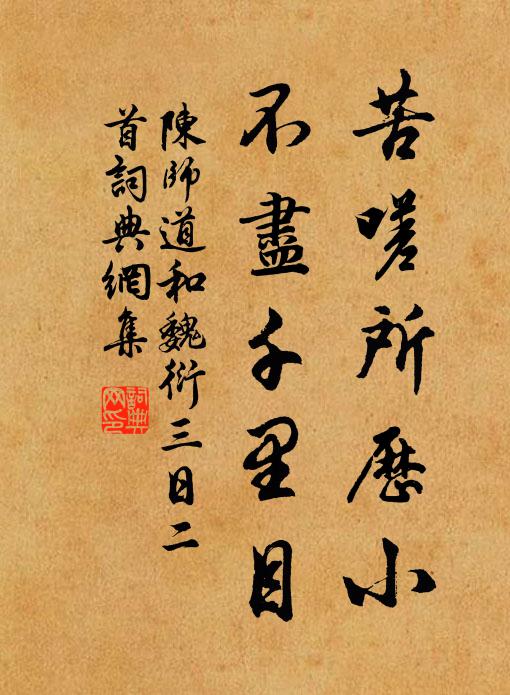 苦嗟所歷小
不盡千里目
陳師道和魏衍三日二
首詞典網集
詞典
网印